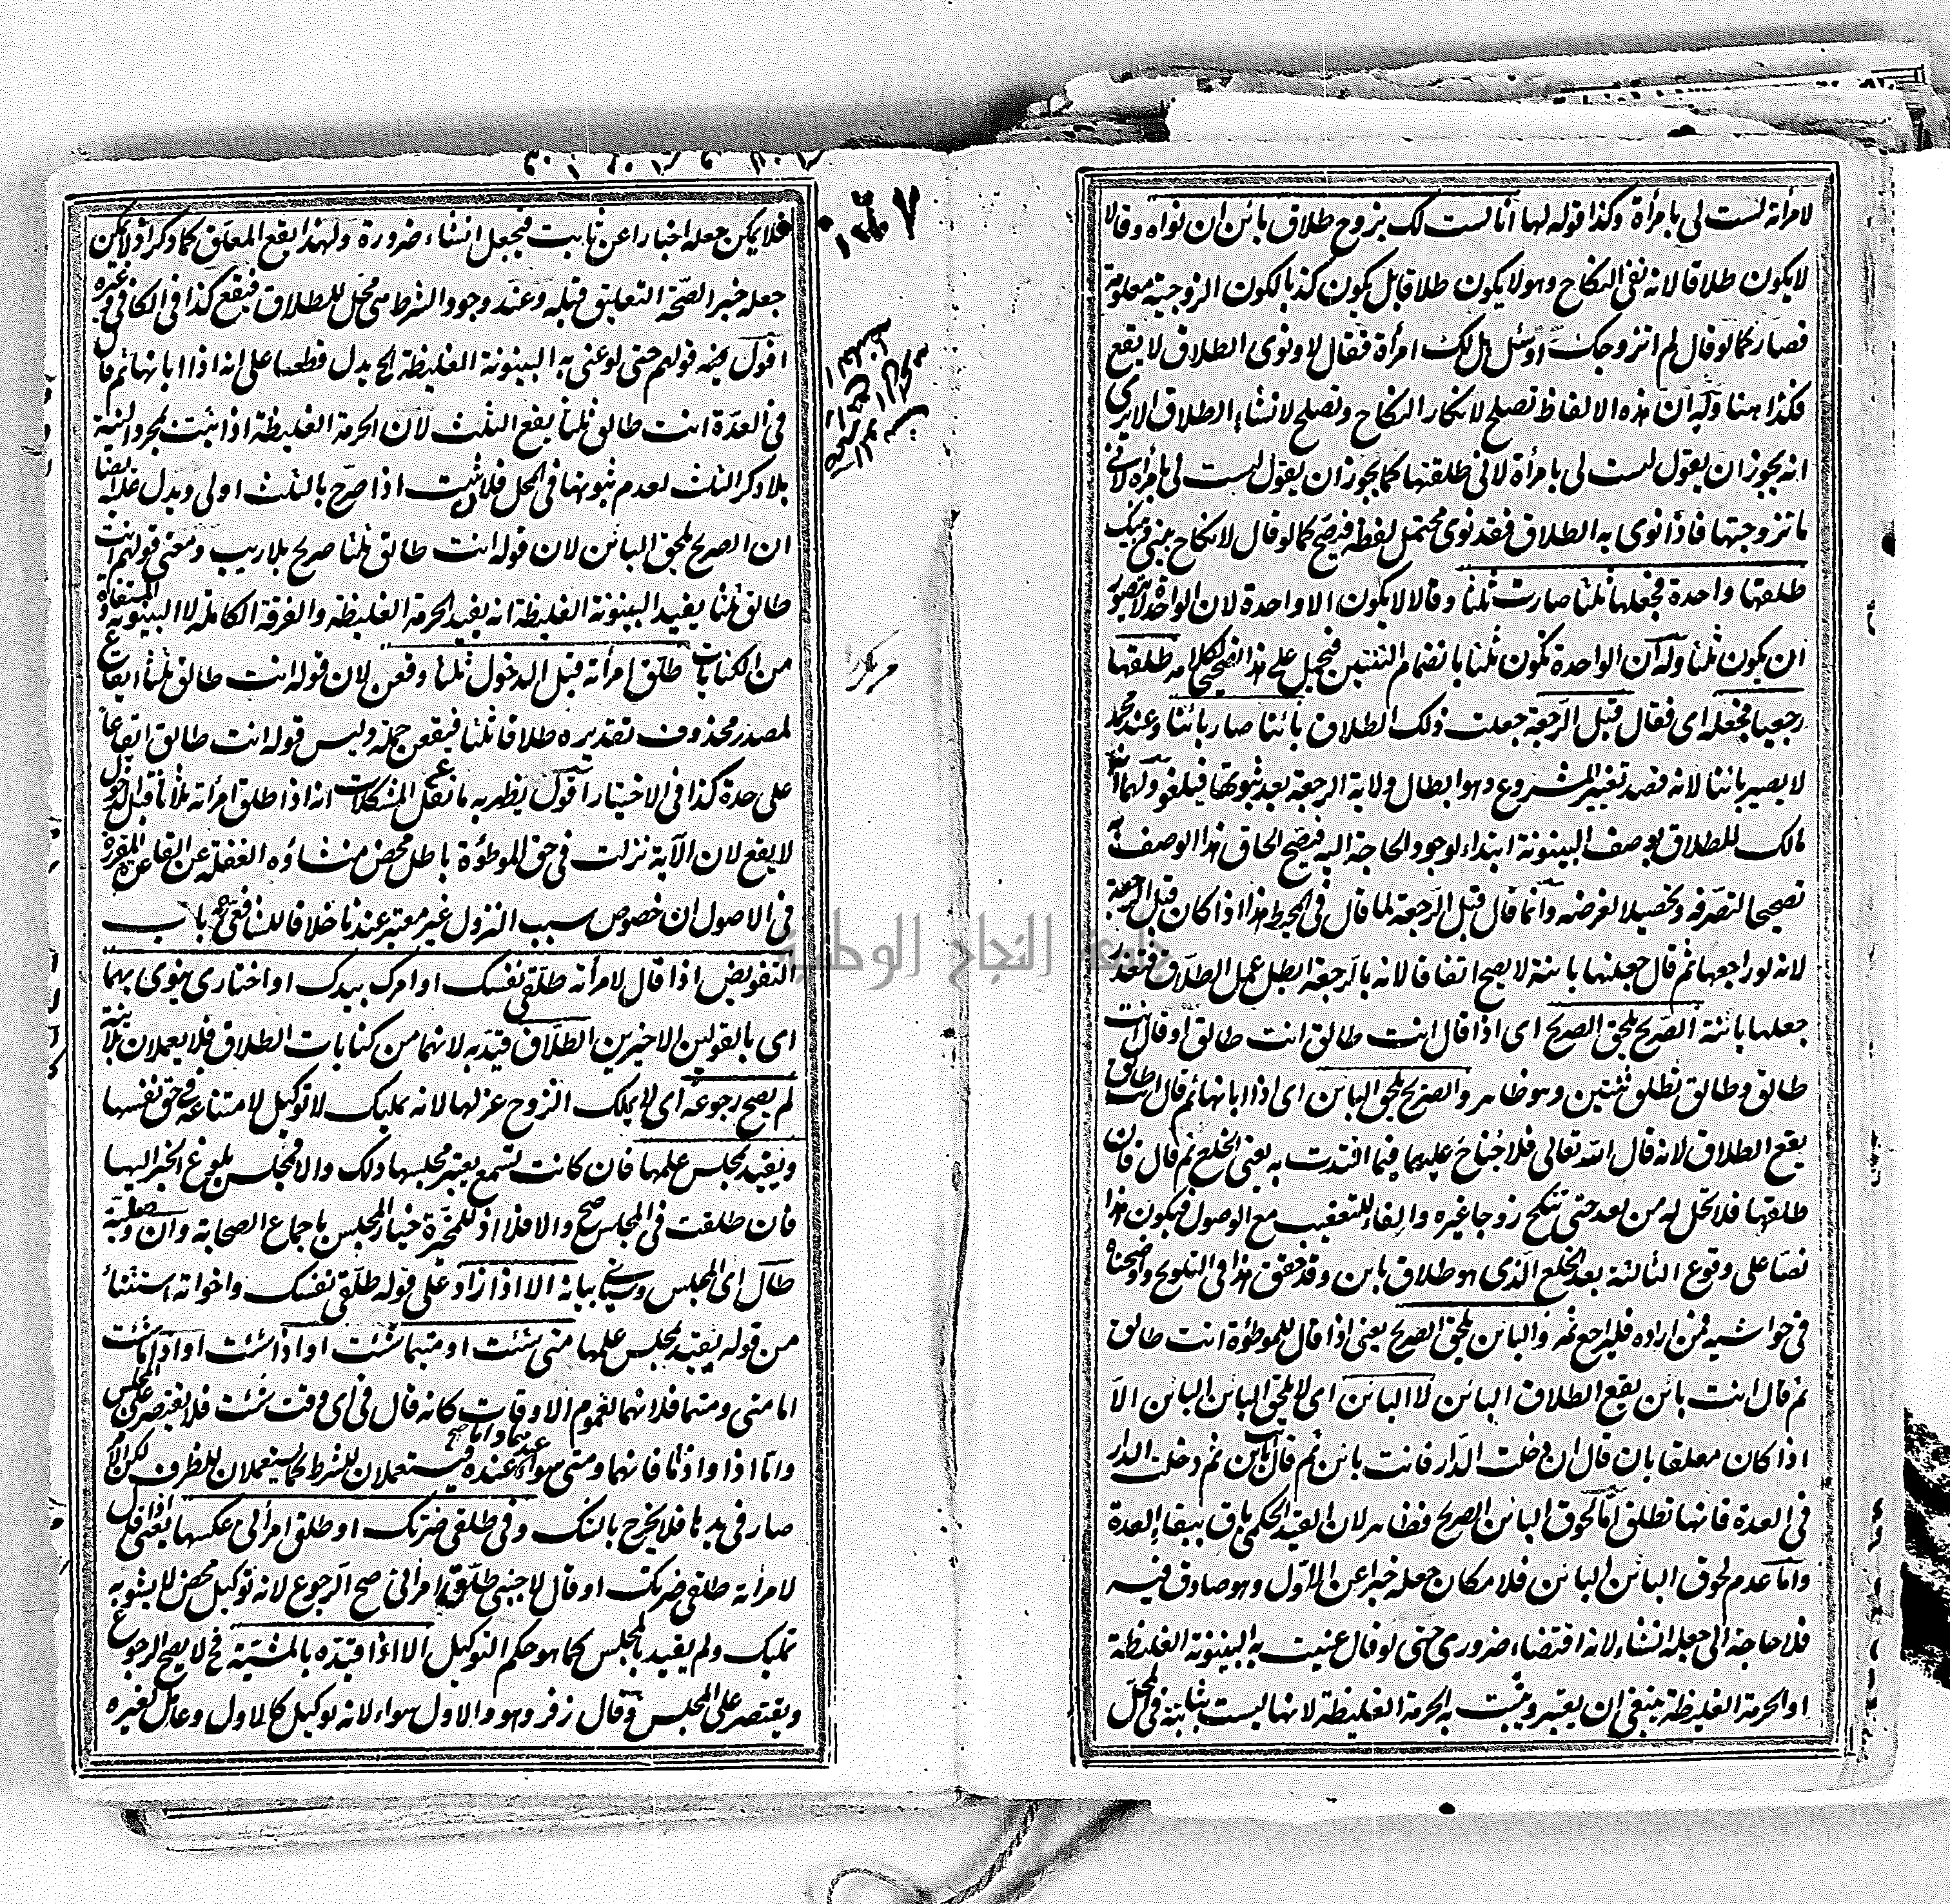 لامرأته لست لي بامرأة وكذا قوله لها انا لست لك بزوج طلاق بائن ان نواه وقالا
لا يكون طلاقا لانه نفى النكاح وهو لا يكون طلاقا بل يكون كذبا لكون الزوجية معلومة
فصار كما لو قال لم اتزوجك او سئل هل لك امرأة فقال لا ونوى الطلاق لا يقع
فكذا هنا وله ان هذه الالفاظ تصلح لانكار النكاح وتصلح لانشاء الطلاق الا يرى
انه يجوز ان يقول ليست لي بامرأة لاني طلقتها كما يجوز ان يقول ليست لي بامرأة لاني
ما تزوجتها فاذا نوى به الطلاق فقد نوى محتمل لفظه فيصح كما لو قال لا نكاح بيني وبينك
طلقتها واحدة فجعلها ثلثا صارت ثلثا وقالا لا يكون الا واحدة لان الواحدة لا يتصور
ان يكون ثلثا وله ان الواحدة تكون ثلثا بانضمام الثنتين فيحمل عليه تصحيحا لكلامه طلقها
رجعيا فجعله اي فقال قبل الرجعة جعلت ذلك الطلاق بائنا صار بائنا وعند محمد
لا يصير بائنا لانه قصد تغيير المشروع وهو ابطال ولاية الرجعة بعد ثبوتها فيلغو ولهما انه
مالك للطلاق بوصف البينونة ابتداء لوجود الحاجة اليه فيصح الحاق هذا الوصف به
تصحيحا لتصرفه وتحصيلا لغرضه وانما قال قبل الرجعة لما قال في المحيط هذا اذا كان قبل الرجعة
لانه لو راجعها ثم قال جعلتها بائنة لا يصح اتفاقا لانه بالرجعة ابطل عمل الطلاق فتعذر
جعلها بائنة الصريح يلحق الصريح اي اذا قال انت طالق انت طالق او قال انت
طالق وطالق تطلق ثنتين وهو ظاهر والصريح يلحق البائن اي اذا ابانها ثم قال انت طالق
يقع الطلاق لانه قال الله تعالى فلا جناح عليهما فيما افتدت به يعني الخلع ثم قال فان
طلقها فلا تحل له من بعد حتى تنكح زوجا غيره والفاء للتعقيب مع الوصول فيكون هذا
نصا على وقوع الثالثة بعد الخلع الذي هو طلاق بائن وقد حقق هذا في التلويح واوضحناه
في حواشيه فمن اراده فليراجع ثمه والبائن يلحق الصريح يعني اذا قال للموطؤة انت طالق
ثم قال انت بائن يقع الطلاق البائن لا البائن اي لا يلحق البائن البائن الا
اذا كان معلقا بان قال ان دخلت الدار فانت بائن ثم قال انت بائن ثم دخلت الدار
في العدة فانها تطلق اما لحوق البائن الصريح فظاهر لان القيد الحكمي باق ببقاء العدة
واما عدم لحوق البائن البائن فلامكان جعله خبرا عن الاول وهو صادق فيه
فلا حاجة الى جعله انشاء لانه اقتضاء ضروري حتى لو قال عنيت به البينونة الغليظة
او الحرمة الغليظة ينبغي ان يعتبر ويثبت به الحرمة الغليظة لانها ليست بثابتة في المحل
فلا يمكن جعله اخبارا عن ثابت فيجعل انشاء ضرورة ولهذا يقع المعلق كما ذكر اذ لا يمكن
جعله خبرا لصحة التعليق قبله وعند وجود الشرط هي محل للطلاق فيقع كذا في الكافي وغيره
اقول فيه قولهم حتى لو عنى به البينونة الغليظة الخ يدل قطعا على انه اذا ابانها ثم قال
في العدة انت طالق ثلثا يقع الثلث لان الحرمة الغليظة اذا ثبت بمجرد النية
بلا ذكر الثلث لعدم ثبوتها في المحل فلان يثبت اذا صرح بالثلث اولى ويدل عليه ايضا
ان الصريح يلحق البائن لان قوله انت طالق ثلثا صريح بلا ريب ومعنى قولهم انت
طالق ثلثا يفيد البينونة الغليظة انه يفيد الحرمة الغليظة والفرقة الكاملة لا البينونة المستفادة
من الكنايات طلق امرأته قبل الدخول ثلثا وقعن لان قوله انت طالق ثلثا ايقاع
لمصدر محذوف تقديره طلاقا ثلثا فيقعن جملة وليس قوله انت طالق ايقاعا
على حدة كذا في الاختيار اقول يظهر به ما نقل عن المشكلات انه اذا طلق امرأته ثلاثا قبل الدخول
لا يقع لان الآية نزلت في حق الموطؤة باطل محض منشاؤه الغفلة عن القاعدة المقررة
في الاصول ان خصوص سبب النزول غير معتبر عندنا خلافا للشافعي رحمه باب
التفويض اذا قال لامرأته طلقي نفسك او امرك بيدك او اختاري ينوي بهما
اي بالقولين الاخيرين الطلاق قيد به لانهما من كنايات الطلاق فلا يعملان بلا نية
لم يصح رجوعه اي لا يملك الزوج عزلها لانه تمليك لا توكيل لامتناعه في حق نفسها
وتقيد بمجلس علمها فان كانت تسمع يعتبر مجلسها ذلك والا فمجلس بلوغ الخبر اليها
فان طلقت في المجلس صح والا فلا اذ للمخيرة خيار المجلس باجماع الصحابة وان وصلية
طال اي المجلس وسيأتي بيانه الا اذا زاد على قوله طلقي نفسك واخواته استثناء
من قوله يقيد بمجلس علمها متى شئت او متيما شئت او اذا شئت او اذا ما شئت
اما متى ومتيما فلانهما لعموم الاوقات كانه قال في اي وقت شئت فلا يقتصر على المجلس
واما اذا واذا ما فانهما ومتى سواء عندهما واما عنده فيستعملان للشرط كما يستعملان للظرف لكن الامر
صار في يدها فلا يخرج بالشك وفي طلقي ضرتك او طلق امرأتي عكسها يعني اذا قال
لامرأته طلقي ضرتك او قال لاجنبي طلق امرأتي صح الرجوع لانه توكيل محض لا يشوبه
تمليك ولم يقيد بالمجلس كما هو حكم التوكيل الا اذا قيده بالمشيئة فح لا يصح الرجوع
ويقتصر على المجلس وقال زفر وهو والاول سواء لانه توكيل كالاول وعامل لغيره
جامعة النجاح الوطنية